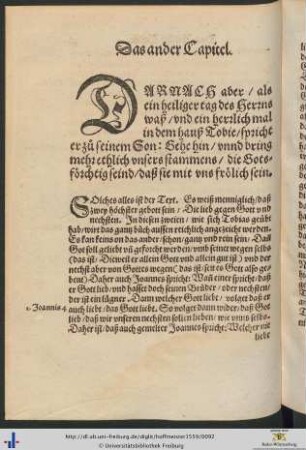 Das ander Capitel.
DARNACH aber / als
ein heiliger tag des Herrns
waß / vnd ein herrlich mal
in dem hauß Tobie / spricht
er zů seinem Son: Gehe hin / vnnd bring
mehr etlich vnsers stammens / die Gots-
förchtig seind / daß sie mit vns frölich sein.
SOlches alles ist der Text. Es weiß menniglich / daß
zwey höchster gebott sein / Die lieb gegen Gott vnd
nechsten. In disen zweien / wie sich Tobias geübt
hab / wirt das gantz bůch aussen reichlich angezeicht werden.
Es kan keins on das ander / schön / gantz vnd rein sein / Daß
Got soll geliebt vñ geforcht werden / vmb seinet wegen selbs
(das ist / Dieweil er allein Gott vnd allein gut ist) vnd der
nechst aber von Gottes wegen (das ist / sein es Got also ge-
bene) Daher auch Joannes spricht: Waß einer spricht / daß
er Gott lieb / vnd hasset doch seinen Brůder / oder nechsten /
der ist ein lügner. Dann welcher Gott liebt / volget daß er
auch liebt / das Gott liebt. So volget dann wider / daß Got
lieb / daß wir vnseren nechsten sollen lieben / wie vnns selbs.
Daher ist / daß auch gemelter Joannes spricht: Welcher nit
liebt
1. Joannis 4.
http://dl.ub.uni-freiburg.de/diglit/hoffmeister1559/0092
© Universitätsbibliothek Freiburg
Baden-Württemberg